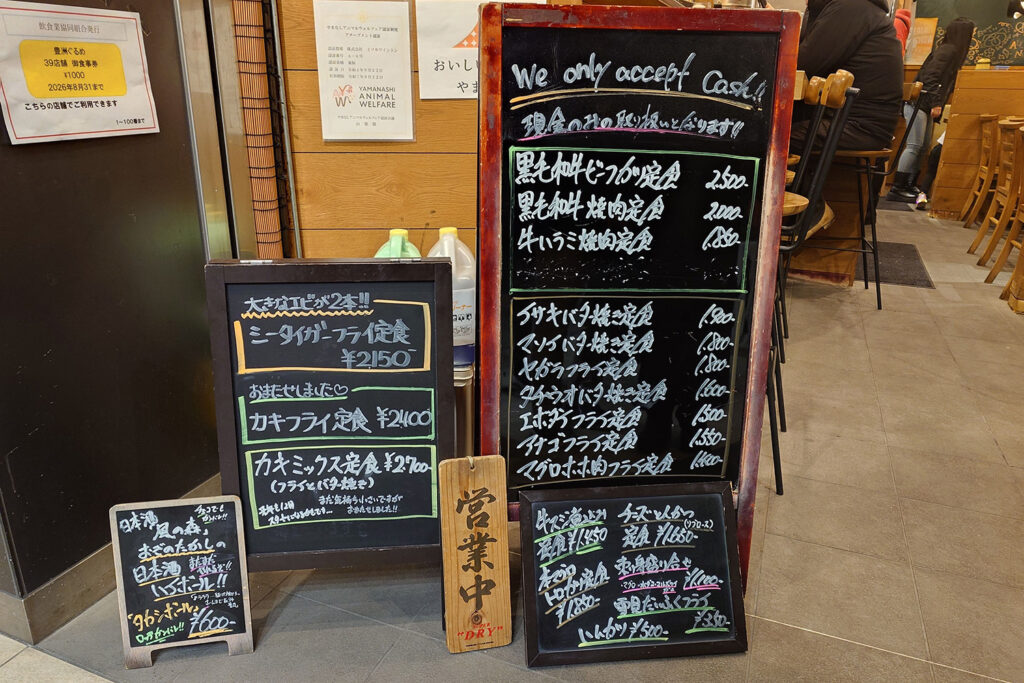 飲食業協同組合発行
豊洲ぐるめ
39店舗 御食事券
¥1000
2026年8月31まで
こちらの店舗でご利用できます
1〜100番まで
YAMANASHI
ANIMAL
WELFARE
おいしい
やま
We only accept Cash!!
現金のみの取り扱いとなります!!
黒毛和牛ビーフカツ定食 2,500-
黒毛和牛焼肉定食 2,000-
牛ハラミ焼肉定食 1,850-
イサキバター焼き定食 1,900-
マソイバター焼き定食 1,800-
ヤガラフライ定食 1,800-
タチウオバター焼き定食 1,600-
エボダイフライ定食 1,500-
アナゴフライ定食 1,550-
マグロホホ肉フライ定食 1,600-
大きなエビが2本!!
シータイガーフライ定食
¥2,150-
おまたせしました♡
カキフライ定食 ¥2,400
カキミックス定食 ¥2,700-
(フライとバター焼き)
まだ気持ち小さいですが
おまたせしました!!
日本酒
風の森
おぞのたかしの
日本酒
いろボール!!
「タカシボール」
¥600-
営業中
"DRY"
定食 ¥1,450
チーズとんかつ
定食 ¥1,650-
本マグロ
トロカツ定食
¥1,880-
刺身盛り合せ
¥1,100-
いかゲソ ¥500-
¥350-